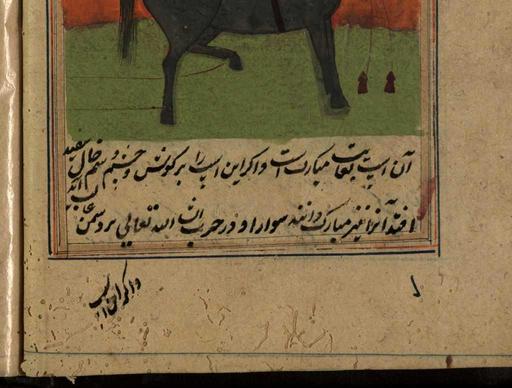 آن اسپ بغایت مبارک است و اگر این اسپ را بر گوش و چشم و سم خال سفید
افتد آنرا نیز مبارک دانند سوار او در حرب ان شاء الله تعالی بر دشمن غالب آید
و اگر این اسپ